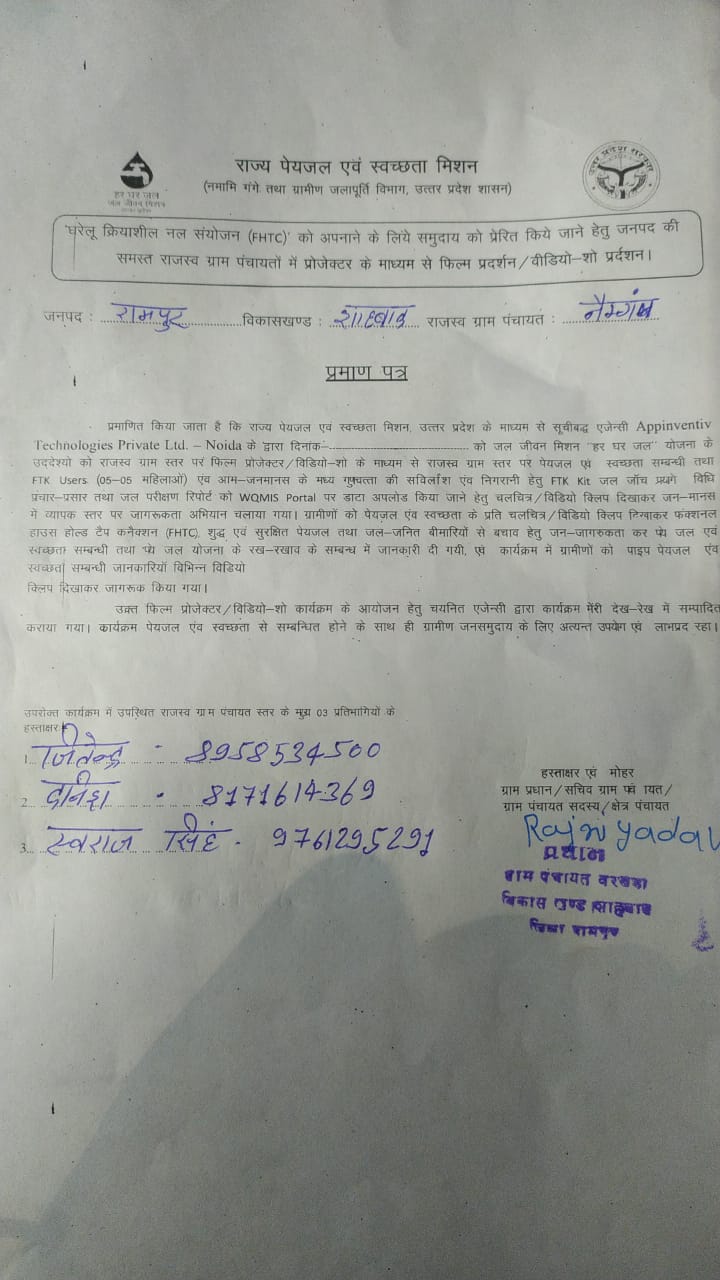 हर घर जल
जल जीवन मिशन
राज्य पेयजल एवं स्वच्छता मिशन
(नमामि गंगे तथा ग्रामीण जलापूर्ति विभाग, उत्तर प्रदेश शासन)
उत्तर प्रदेश सरकार
'घरेलू क्रियाशील नल संयोजन (FHTC)' को अपनाने के लिये समुदाय को प्रेरित किये जाने हेतु जनपद की
समस्त राजस्व ग्राम पंचायतों में प्रोजेक्टर के माध्यम से फिल्म प्रदर्शन/वीडियो-शो प्रर्दशन।
जनपद : रामपुर विकासखण्ड : शाहबाद राजस्व ग्राम पंचायत :
प्रमाण पत्र
प्रमाणित किया जाता है कि राज्य पेयजल एवं स्वच्छता मिशन, उत्तर प्रदेश के माध्यम से सूचीबद्ध एजेन्सी Appinventiv
Technologies Private Ltd. – Noida के द्वारा दिनांक- को जल जीवन मिशन "हर घर जल" योजना के
उददेश्यो को राजस्व ग्राम स्तर पर फिल्म प्रोजेक्टर/विडियो-शो के माध्यम से राजस्व ग्राम स्तर पर पेयजल एवं स्वच्छता सम्बन्धी तथा
FTK Users (05-05 महिलाओं) एवं आम-जनमानस के मध्य गुणवत्ता की सर्विलांश एंव निगरानी हेतु FTK Kit जल जाँच प्रयोग विधि
प्रचार-प्रसार तथा जल परीक्षण रिपोर्ट को WQMIS Portal पर डाटा अपलोड किया जाने हेतु चलचित्र/विडियो क्लिप दिखाकर जन-मानस
में व्यापक स्तर पर जागरूकता अभियान चलाया गया। ग्रामीणों को पेयजल एंव स्वच्छता के प्रति चलचित्र/विडियो क्लिप दिखाकर फंक्शनल
हाउस होल्ड टैप कनैक्शन (FHTC), शुद्ध एवं सुरक्षित पेयजल तथा जल-जनित बीमारियों से बचाव हेतु जन-जागरुकता कर पेय जल एवं
स्वच्छता सम्बन्धी तथा पेय जल योजना के रख-रखाव के सम्बन्ध में जानकारी दी गयी, एवं कार्यक्रम में ग्रामीणों को पाइप पेयजल एंव
स्वच्छता सम्बंधी जानकारियों विभिन्न विडियो
क्लिप दिखाकर जागरूक किया गया।
उक्त फिल्म प्रोजेक्टर/विडियो-शो कार्यक्रम के आयोजन हेतु चयनित एजेन्सी द्वारा कार्यक्रम मेरी देख-रेख में सम्पादित
कराया गया। कार्यक्रम पेयजल एंव स्वच्छता से सम्बन्धित होने के साथ ही ग्रामीण जनसमुदाय के लिए अत्यन्त उपयोग एवं लाभप्रद रहा।
उपरोक्त कार्यक्रम में उपस्थित राजस्व ग्राम पंचायत स्तर के मुख्य 03 प्रतिभागियों के
हस्ताक्षर
1. जितेन्द्र - 8958534500
2. दानिश - 8171614369
3. स्वराज सिंह - 9761295291
हस्ताक्षर एवं मोहर
ग्राम प्रधान/सचिव ग्राम पंचायत/
ग्राम पंचायत सदस्य/क्षेत्र पंचायत
Raju yadav
प्रधान
ग्राम पंचायत बरखडा
विकास खण्ड शाहबाद
जिला रामपुर